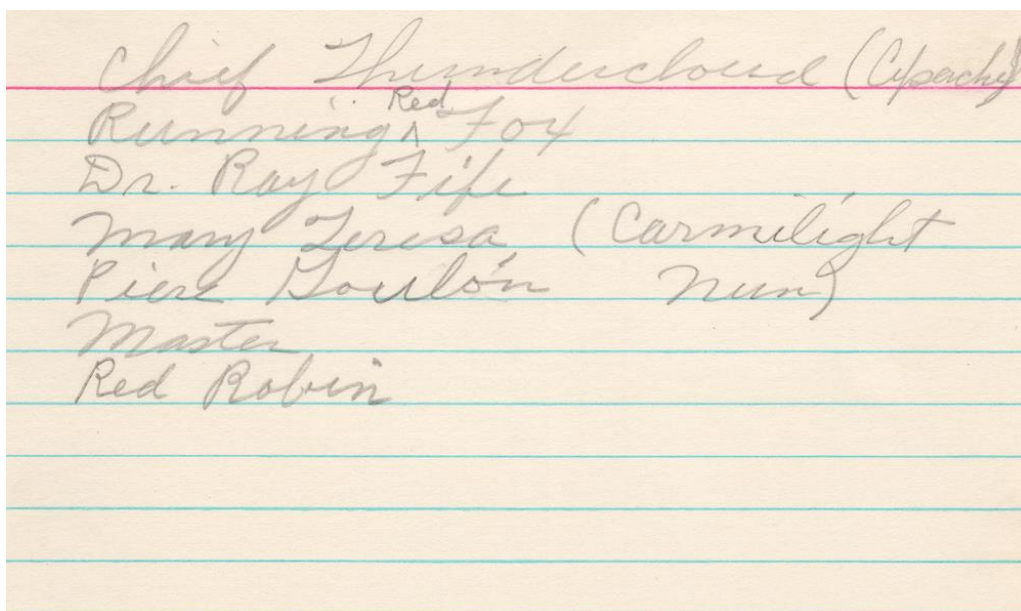 Chief Thundercloud (Apache)
Running Red Fox
Dr. Ray Fife
Mary Teresa (Carmilight
Piere Goulon Nun)
Master
Red Robin